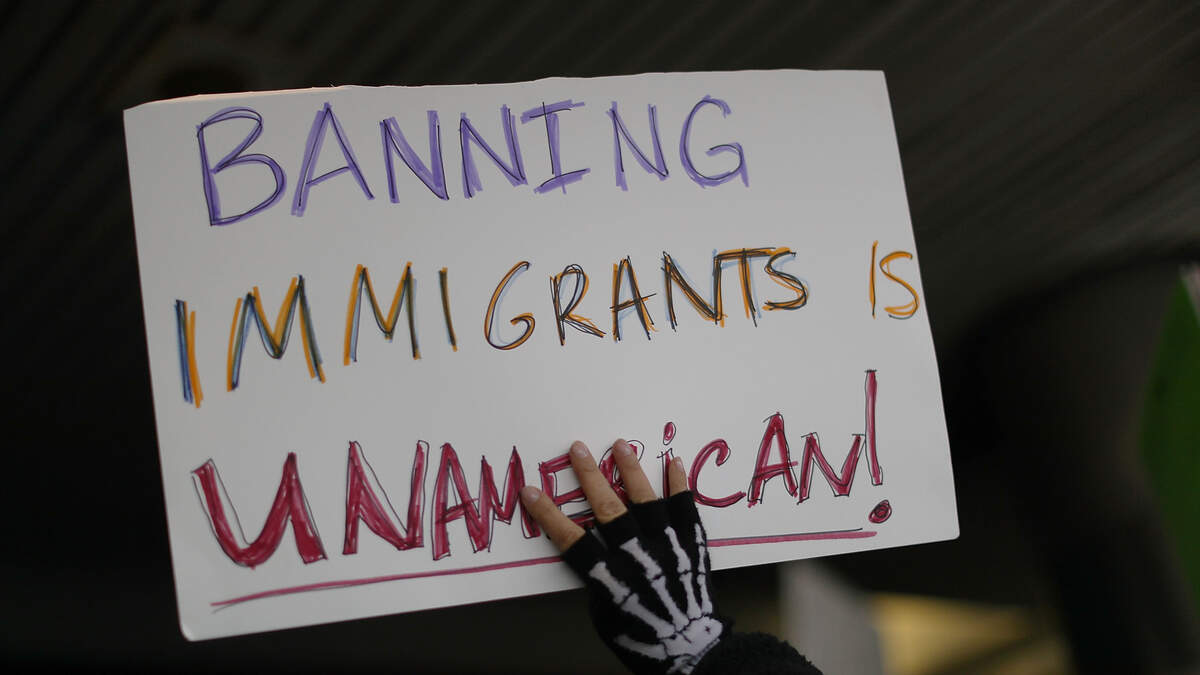 BANNING
IMMIGRANTS IS
UNAMERiCAN!